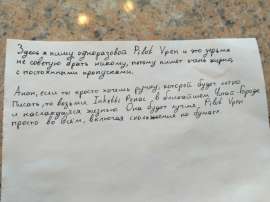 Здесь я пишу одноразовой Pilot Vpen и это
не советую брать никому, потому пишет очень жирно,
с постоянными пропусками.
Анон, если ты просто хочешь ручку, которой будет легко
писать, то возьми в ближайшем
и наслаждайся жизнью. Она будет лучше, Pilot Vpen
просто во всём, включая скольжение по бумаге